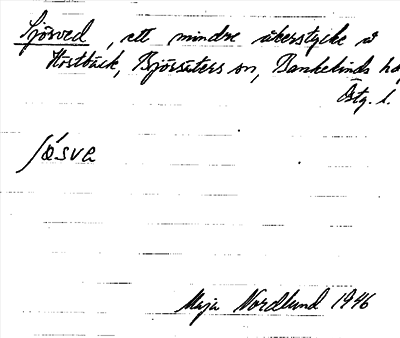 Sjösved, ett mindre åkerstycke å
Höstbäck, Björsäters sn, Bankekinds hd,
Östg. l.
sǿsve
Maja Nordlund 1946